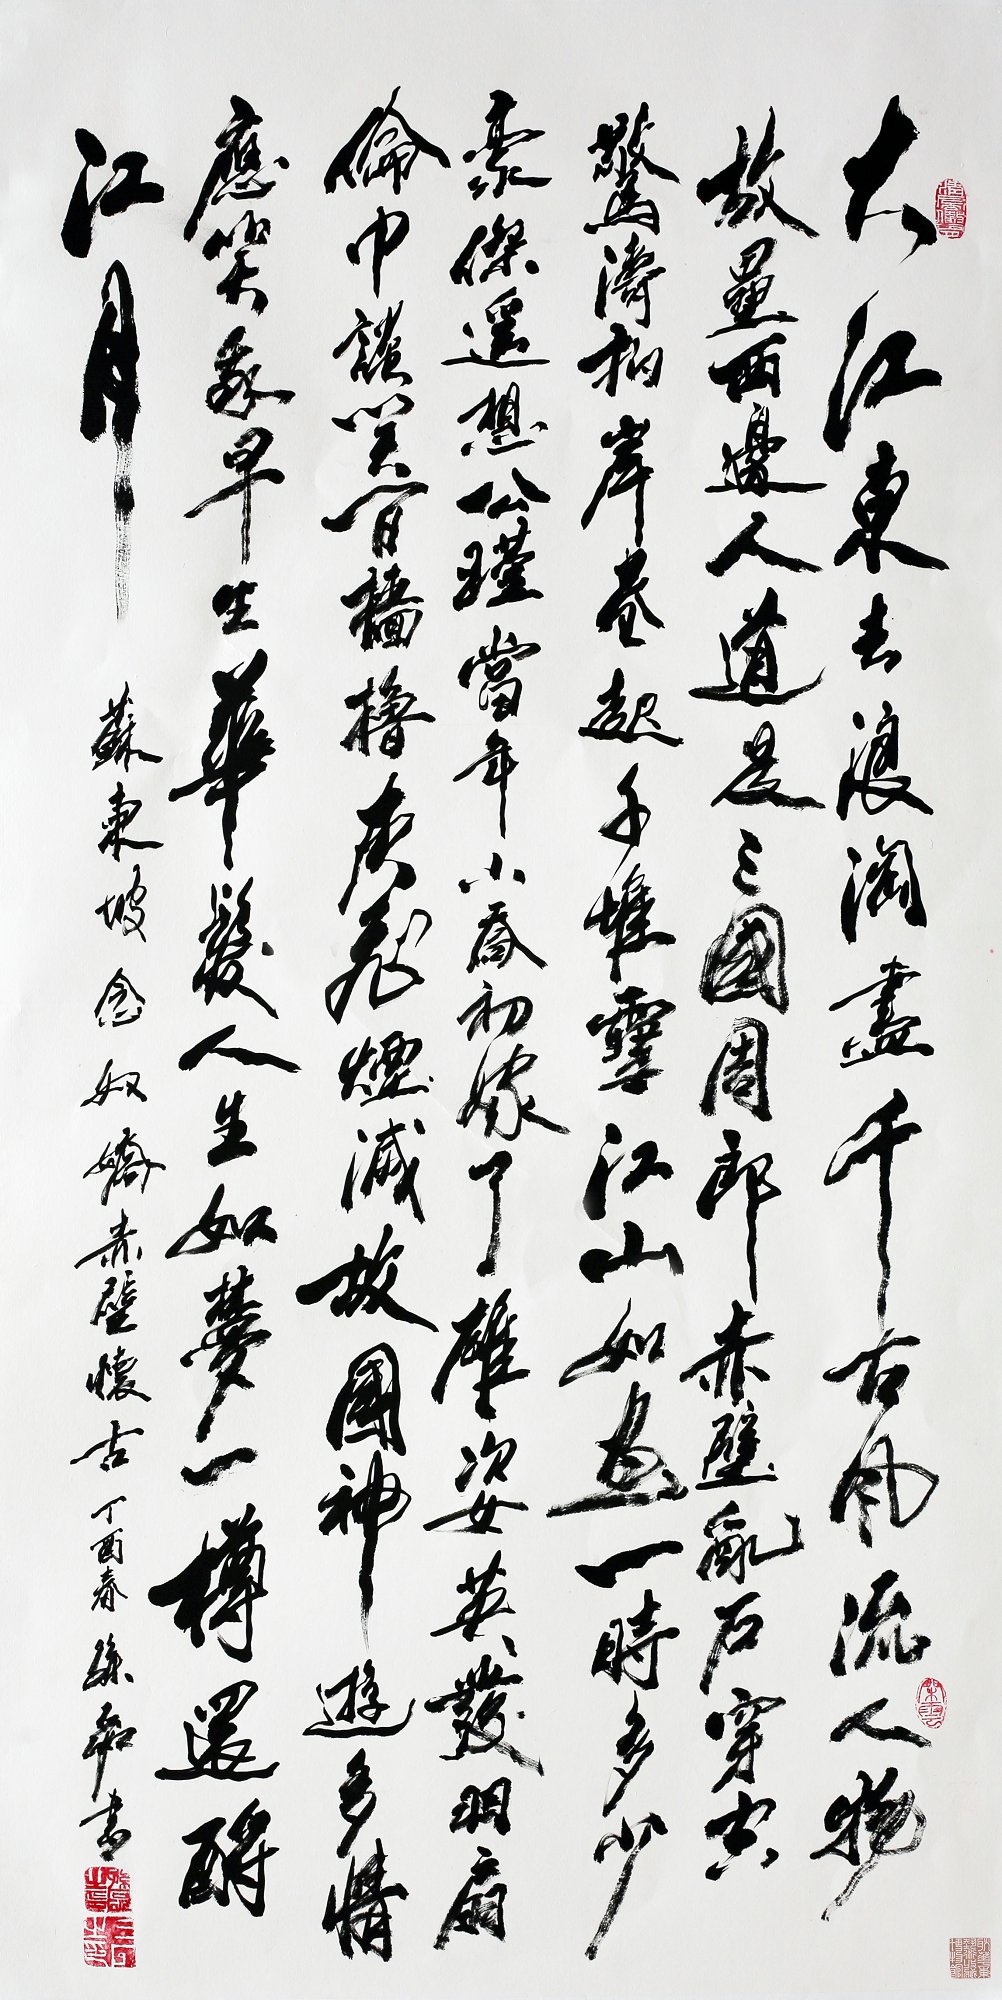 大江東去浪淘盡千古風流人物
故壘西邊人道是三國周郎赤壁亂石穿空
驚濤拍岸卷起千堆雪江山如畫一時多少
豪傑遙想公瑾當年小喬初嫁了雄姿英發羽扇
倫巾談笑間檣櫓灰飛煙滅故國神遊多情
應笑我早生華髮人生如夢一樽還酹
江月
蘇東坡念奴嬌赤壁懷古 丁酉春 孫 書